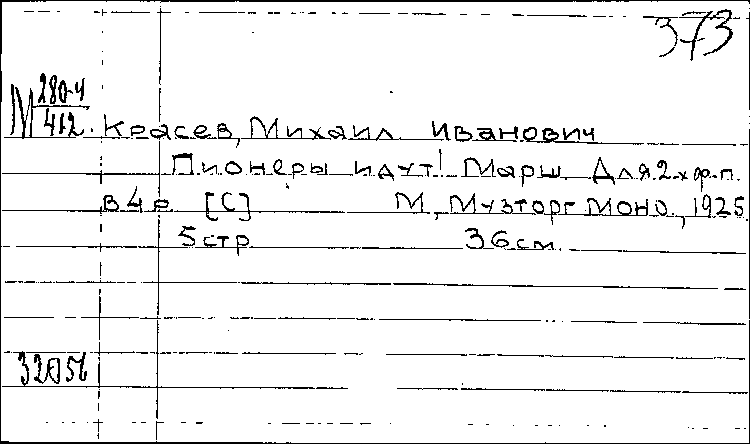 373
М 280-4
412. Красев, Михаил Иванович
Пионеры идут! Марш. Для 2-х ф.-п.
в 4 р. [С] М., Музторг Моно, 1925
5 стр. 36 см.
32056